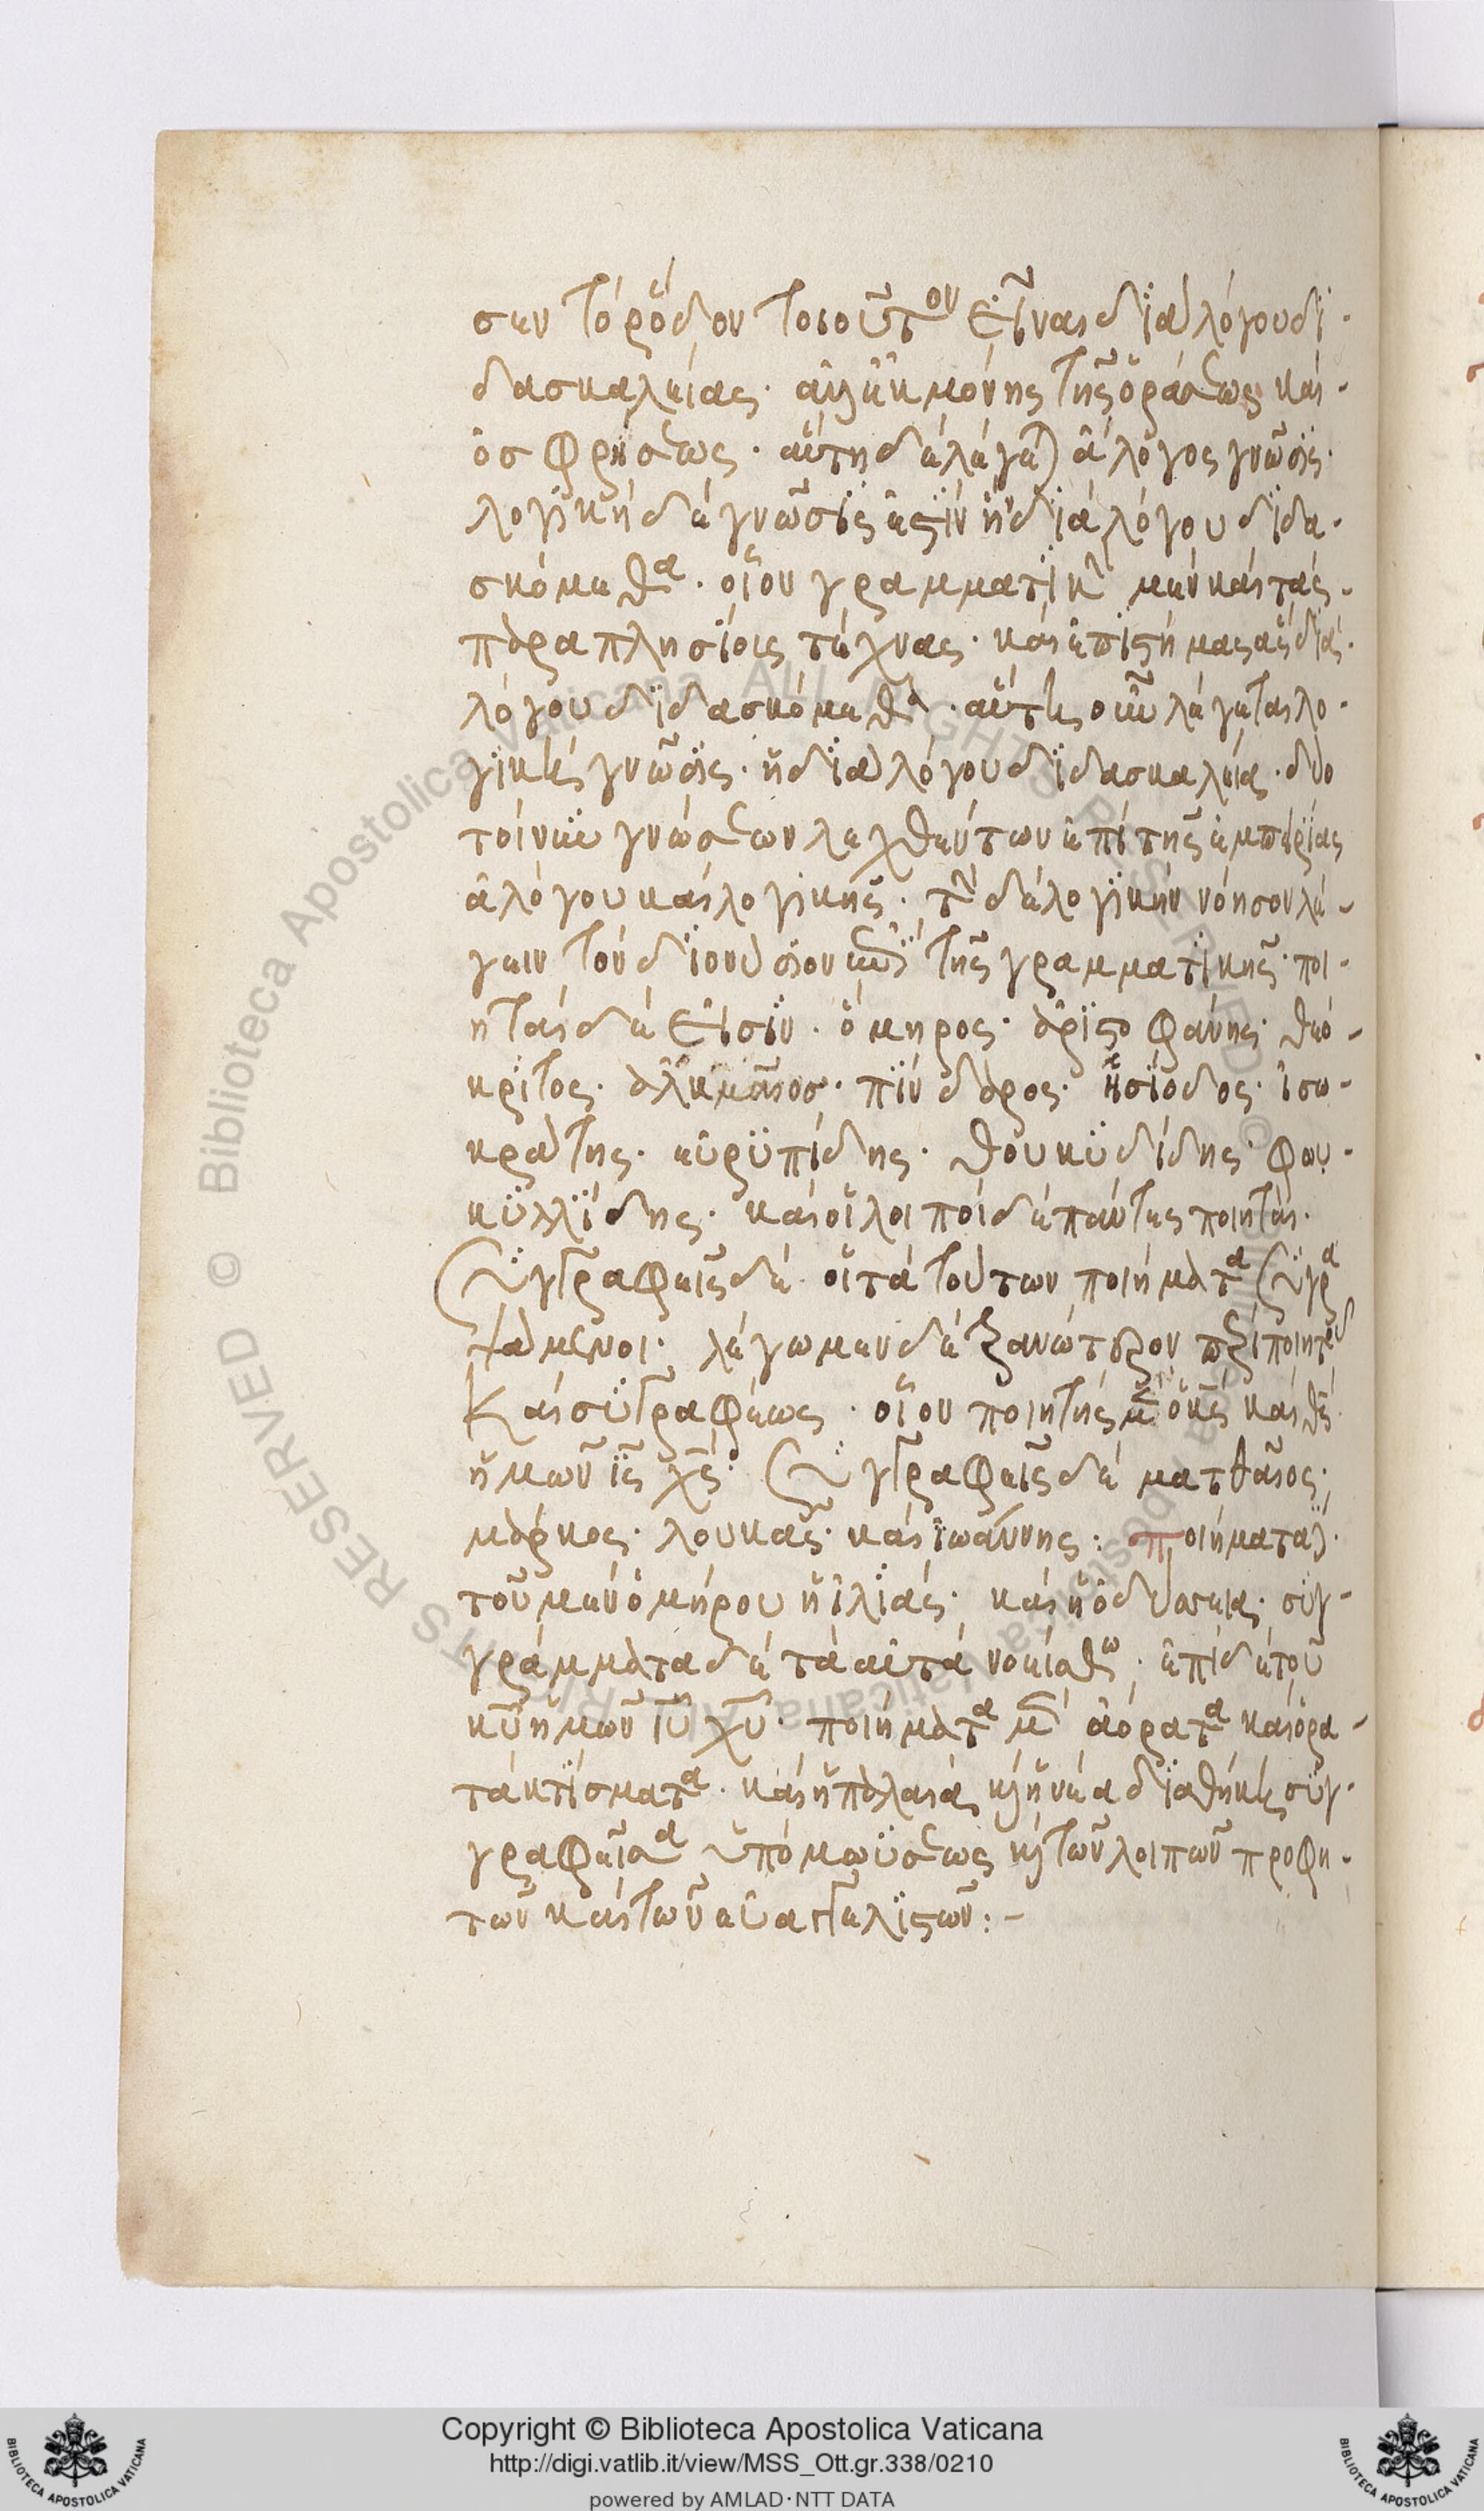 σεν τὸ ῥόδον τοιοῦτον εἶναι διὰ λόγου δι-
δασκαλείας· ἀλλ' ἐκ μόνης τῆς ὁράσεως καὶ
ὀσφρήσεως· αὕτη δὲ λέγεται ἄλογος γνῶσις·
λογικὴ δὲ γνῶσίς ἐστιν ἣν διὰ λόγου διδα-
σκόμεθα· οἷον γραμματικὴν μὲν καὶ τὰς
παραπλησίοις τέχνας· καὶ ἐπιστήμας ἃς διὰ
λόγου διδασκόμεθα· αὕτη οὖν λέγεται λο-
γικῆς γνῶσις· ἡ διὰ λόγου διδασκαλείας· δύο
τοίνυν γνώσεων λεχθέντων ἐπὶ τῆς ἐμπειρίας
ἀλόγου καὶ λογικῆς· τὴν δὲ λογικὴν νόησον λέ-
γειν τὸν διονύσιον ἐπὶ τῆς γραμματικῆς· ποι-
ηταὶ δέ εἰσιν· ὅμηρος· ἀριστοφάνης· θεό-
κριτος· ἀλκμαῖος· πίνδαρος· ἡσίοδος· ἰσω-
κράτης· εὐρυπίδης· θουκυδίδης· φω-
κυλλίδης· καὶ οἱ λοιποὶ δὲ πάντες ποιηταί·
συγγραφεῖς δὲ οἱ τὰ τούτων ποιήματα συγγρα-
ψάμενοι· λέγωμεν δὲ ἐξανώτερον περὶ ποιητοῦ
Καὶ συγγραφέως· οἷον ποιητὴς μὲν ὁ κς καὶ θς
ἡμῶν ις χς· συγγραφεῖς δὲ ματθαῖος·
μάρκος· λουκᾶς· καὶ ἰωάννης: ποιήματα δὲ
τοῦ μὲν ὁμήρου ἡ ἰλιάς· καὶ ἡ ὀδύσσεια· συγ-
γράμματα δὲ τὰ αὐτὰ νοείσθω· ἐπὶ δὲ τοῦ
κυ ἡμῶν ιυ χυ· ποιήματα μὲν ἀόρατα καὶ ὁρα-
τὰ κτίσματα· καὶ ἡ παλαιὰ καὶ ἡ νέα διαθήκης συγ-
γραφεῖσα ὑπὸ μωϋσέως καὶ τῶν λοιπῶν προφη-
τῶν καὶ τῶν εὐαγγελιστῶν:-
Copyright © Biblioteca Apostolica Vaticana
http://digi.vatlib.it/view/MSS_Ott.gr.338/0210
powered by AMLAD·NTT DATA